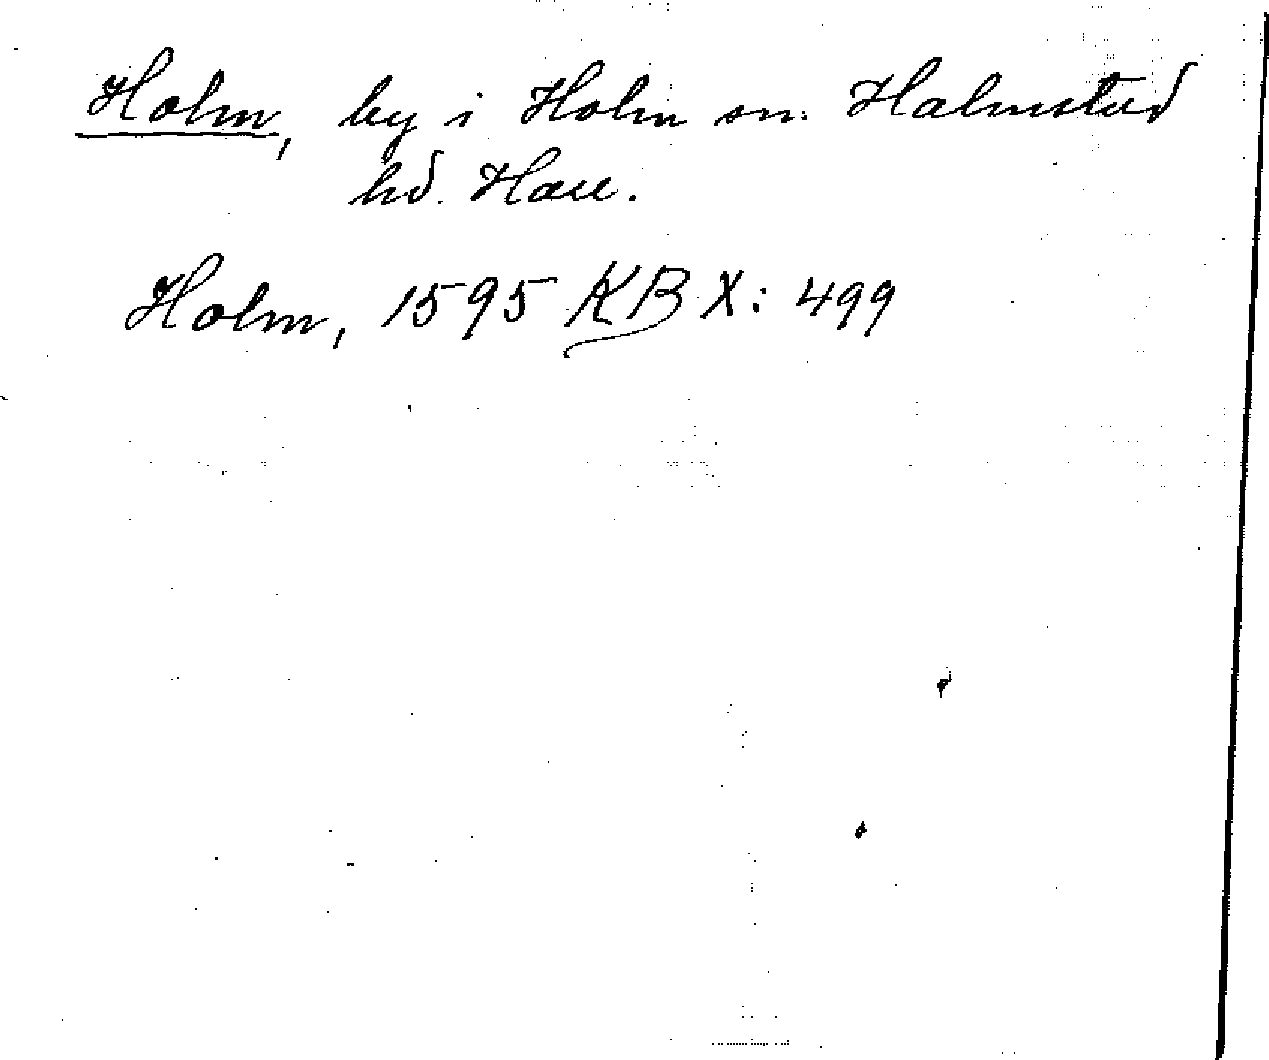 Holm, by i Holm sn. Halmstad
hd. Hall.
Holm, 1595 KB X: 499